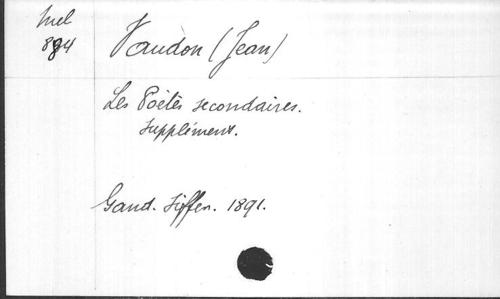 Mel
894
Vaudon (Jean)
Les Poëtes secondaires.
Supplément.
Gand. Siffer. 1891.